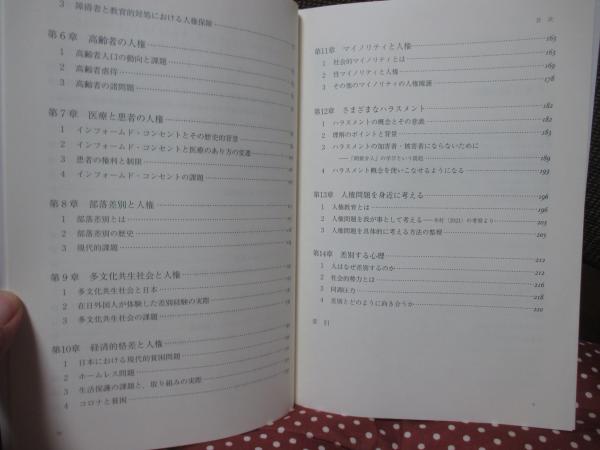 3 障碍者と教育的対処における人権保障
第6章 高齢者の人権
1 高齢者人口の動向と課題
2 高齢者虐待
3 高齢者の諸問題
第7章 医療と患者の人権
1 インフォームド・コンセントとその歴史的背景
2 インフォームド・コンセントと医療のあり方の変遷
3 患者の権利と制限
4 インフォームド・コンセントの課題
第8章 部落差別と人権
1 部落差別とは
2 部落差別の歴史
3 現代的課題
第9章 多文化共生社会と人権
1 多文化共生社会と日本
2 在日外国人が体験した差別経験の実際
3 多文化共生社会の課題
第10章 経済的格差と人権
1 日本における現代的貧困問題
2 ホームレス問題
3 生活保護の課題と、取り組みの実際
4 コロナと貧困
目 次
第11章 マイノリティと人権 163
1 社会的マイノリティとは 163
2 性マイノリティと人権 169
3 その他のマイノリティの人権擁護 178
第12章 さまざまなハラスメント 182
1 ハラスメントの概念とその意義 182
2 理解のポイントと背景 183
3 ハラスメントの加害者・被害者にならないために
189
4 ハラスメント概念を使いこなせるようになる 193
第13章 人権問題を身近に考える 196
1 人権教育とは 196
2 人権問題を我が事として考える——木村（2021）の考察より 203
3 人権問題を具体的に考える方法の整理 205
第14章 差別する心理 212
1 人はなぜ差別するのか 212
2 社会的勢力とは 216
3 同調圧力 218
4 差別とどのように向き合うか 220
索 引